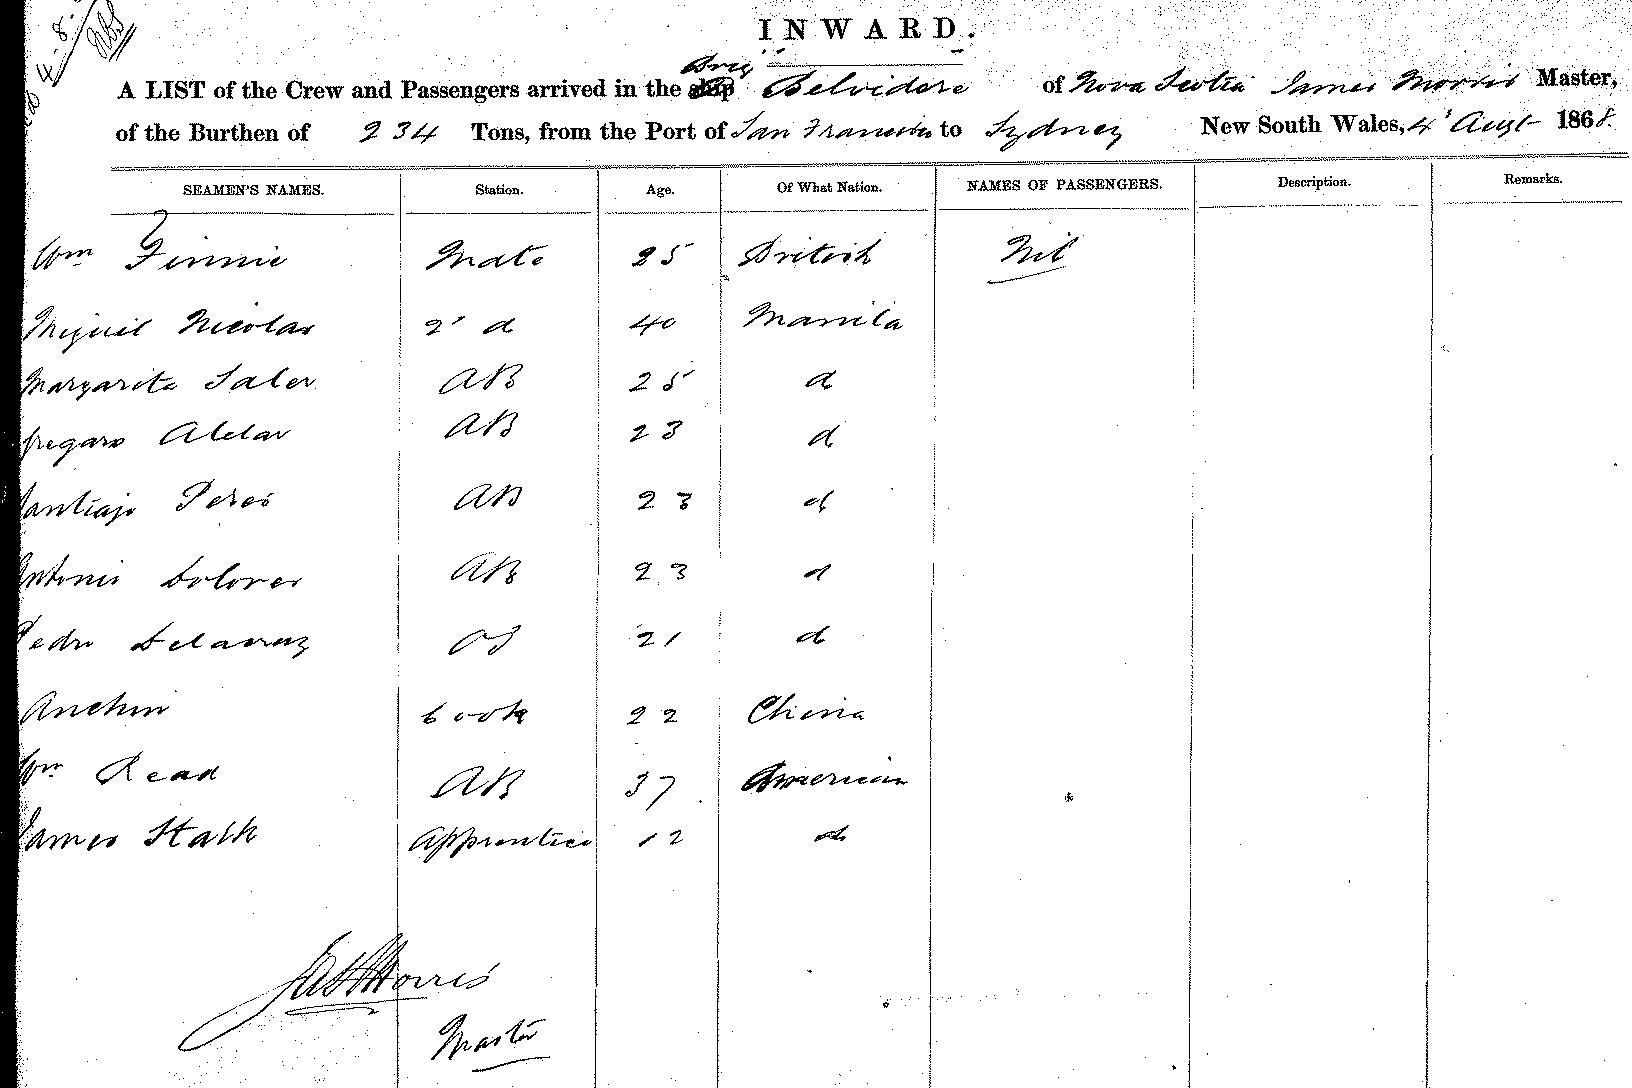 4-8-
INWARD.
Brig
A LIST of the Crew and Passengers arrived in the ship Belvidere of Nova Scotia James Morris Master,
of the Burthen of 234 Tons, from the Port of San Francisco to Sydney New South Wales, 4' Augt 1868.
SEAMEN'S NAMES. Station. Age. Of What Nation. NAMES OF PASSENGERS. Description. Remarks.
Wm Finnie Mate 25 British Nil
Miguil Nicolas 2' d 40 Manila
Margarito Saler AB 25 d
Gregaro AB 23 d
Santiajo Peres AB 23 d
Antonio Dolores AB 23 d
Pedro Delacruz OS 21 d
Anchin Cook 22 China
Wm Read AB 37 American
James Stark Apprentice 12 d
Jas Morris
Master